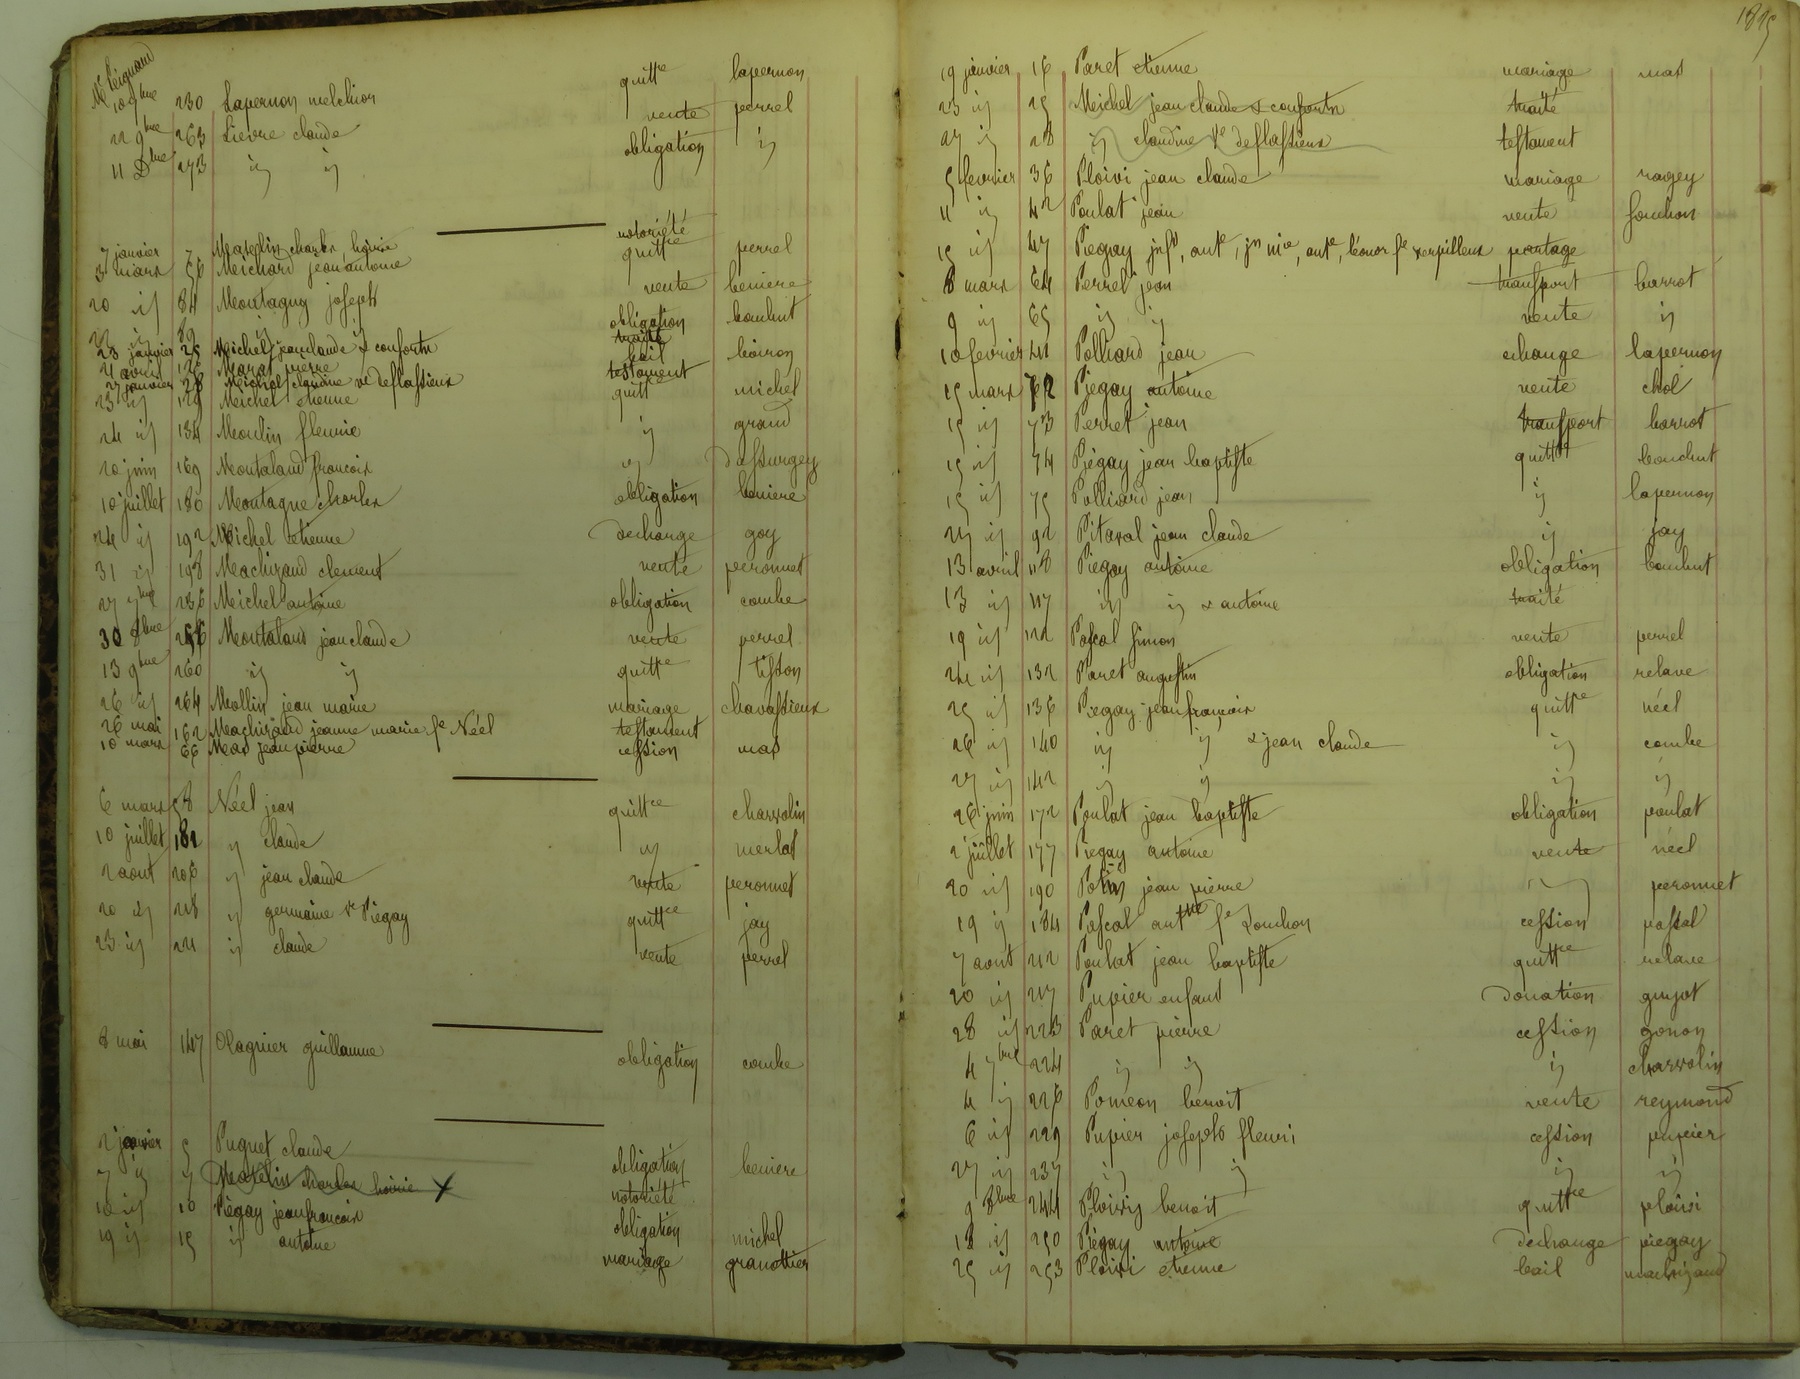 Me Peignaud
10 9bre 230 Lapernon melchior quittce lapernon
22 9bre 263 Lievre claude vente perrel
11 Dbre 273 ij ij obligation ij
7 janvier 7 Mazelin charles hoirie notoriété
3 mars 56 Meichard jean antoine quittce perrel
20 ij 84 Montagny joseph vente beniere
22 ij 89 ij ij obligation bouchut
23 janvier 25 Meichel jean claude & consorts traité
4 avril 126 Marat pierre bail boiron
27 janvier 28 Meichel claudine ve deflassieux testament
23 ij 129 Meichel etienne quittce michel
24 ij 134 Moulin fleurie ij grand
20 juin 169 Montaland francois ij Dassurgey
10 juillet 180 Montagne charles obligation beniere
24 ij 192 Meichel etienne decharge goy
31 ij 198 Machizaud clement vente peronnet
27 7bre 236 Meichel antoine obligation combe
30 8bre 256 Montaland jean claude vente perrel
13 9bre 260 ij ij quittce tisson
26 ij 264 Mollin jean marie mariage chavassieux
26 mai 162 Machizaud jeanne marie fe Néel testament
10 mars 66 Mas jean pierre cession mas
6 mars 58 Néel jean quittce charvolin
10 juillet 181 ij claude ij merlat
2 aout 206 ij jean claude vente peronnet
20 ij 218 ij germaine ve Piegay quittce jay
23 ij 221 ij claude vente perrel
8 mai 147 Olagnier guillaume obligation combe
2 janvier 5 Puquet claude obligation beniere
7 ij 7 Mazelin charles hoirie X notoriété
12 ij 10 Piegay jean francois obligation michel
19 ij 15 ij antoine mariage granottier
1825
19 janvier 16 Paret etienne mariage mas
23 ij 25 Meichel jean claude & consorts traité
27 ij 28 ij claudine ve deflassieux testament
5 fevrier 36 Ploivi jean claude mariage ragey
11 ij 42 Poulat jean vente souchon
15 ij 47 Piegay jnfs, ante, jn mie, ante, léonor fe verpilleux partage
8 mars 64 Perrel jean transport barrot
9 ij 65 ij ij vente ij
10 fevrier 41 Polliard jean echange lapernon
15 mars 72 Piegay antoine vente chol
15 ij 73 Perret jean transport barrot
15 ij 74 Piégay jean baptiste quittce bouchut
15 ij 75 Polliard jean ij lapernon
27 ij 92 Pitaval jean claude ij jay
13 avril 118 Piegay antoine obligation bouchut
13 ij 117 ij ij & antoine traité
19 ij 122 Pascal simon vente perrel
24 ij 132 Paret augustin obligation relave
25 ij 136 Piegay jean françois quittce néel
26 ij 140 ij ij & jean claude ij combe
27 ij 142 ij ij ij ij
26 juin 172 Poulat jean baptiste obligation poulat
2 juillet 177 Piegay antoine vente néel
20 ij 190 Potin jean pierre ij peronnet
19 ij 184 Pascal antne fe Souchon cession passal
7 aout 212 Poulat jean baptiste quittce relave
20 ij 217 Pupier enfans Donation guyot
28 ij 223 Paret pierre cession gonon
4 7bre 224 ij ij ij charvolin
4 ij 226 Poméon benoit vente reymond
6 ij 229 Pupier joseph fleuri cession pupier
27 ij 237 ij ij ij ij
9 8bre 244 Ploivy benoit quittce ploivi
18 ij 250 Piégay antoine Decharge piegay
25 ij 253 Ploivi etienne bail machizaud